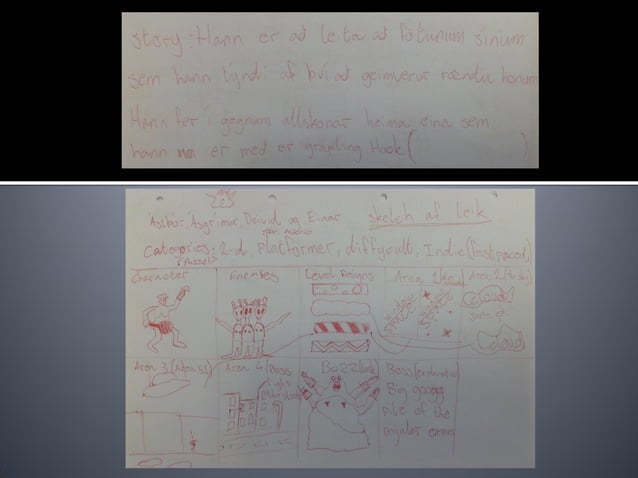 story: Hann er að leita að fötunum sínum
sem hann týndi af því að geimverur rændu honum
Hann fer í gegnum allskonar heima eina sem
hann er með er grapling Hook( )
Ásgrímur, Davíð og Einar sketch af leik
Categories: 2-d, Platformer, diffycult, Indie (fast paced)
(Puzzel)
Character
Enemies
Level Designs
Area 1
Area 2 (the sky)
space
cloud
cloud
Area 3 (Area 51)
Area 4 (Boss
Bozz
Boss (explanation)
Big gooey
pile of the
regular enemies